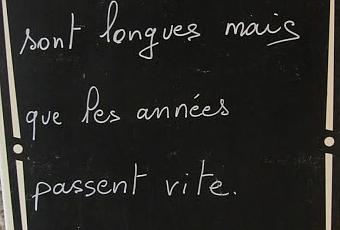 sont longues mais
que les années
passent vite.